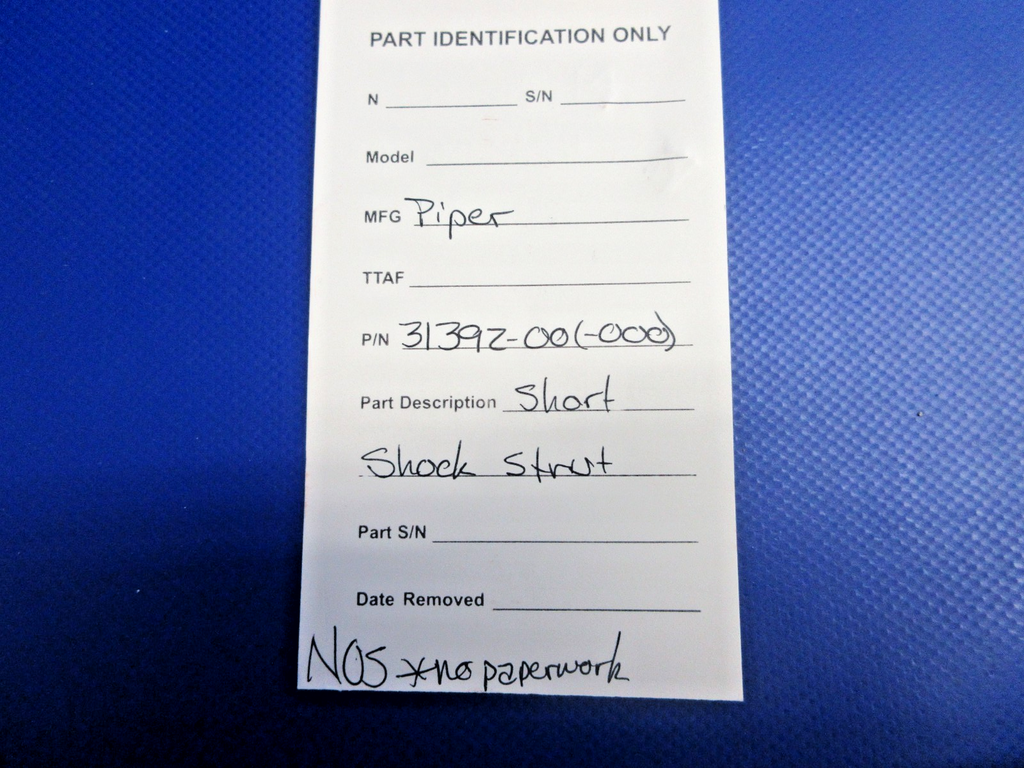 PART IDENTIFICATION ONLY
N S/N
Model
MFG Piper
TTAF
P/N 31392-00(-000)
Part Description Short
Shock Strut
Part S/N
Date Removed
NOS *no paperwork